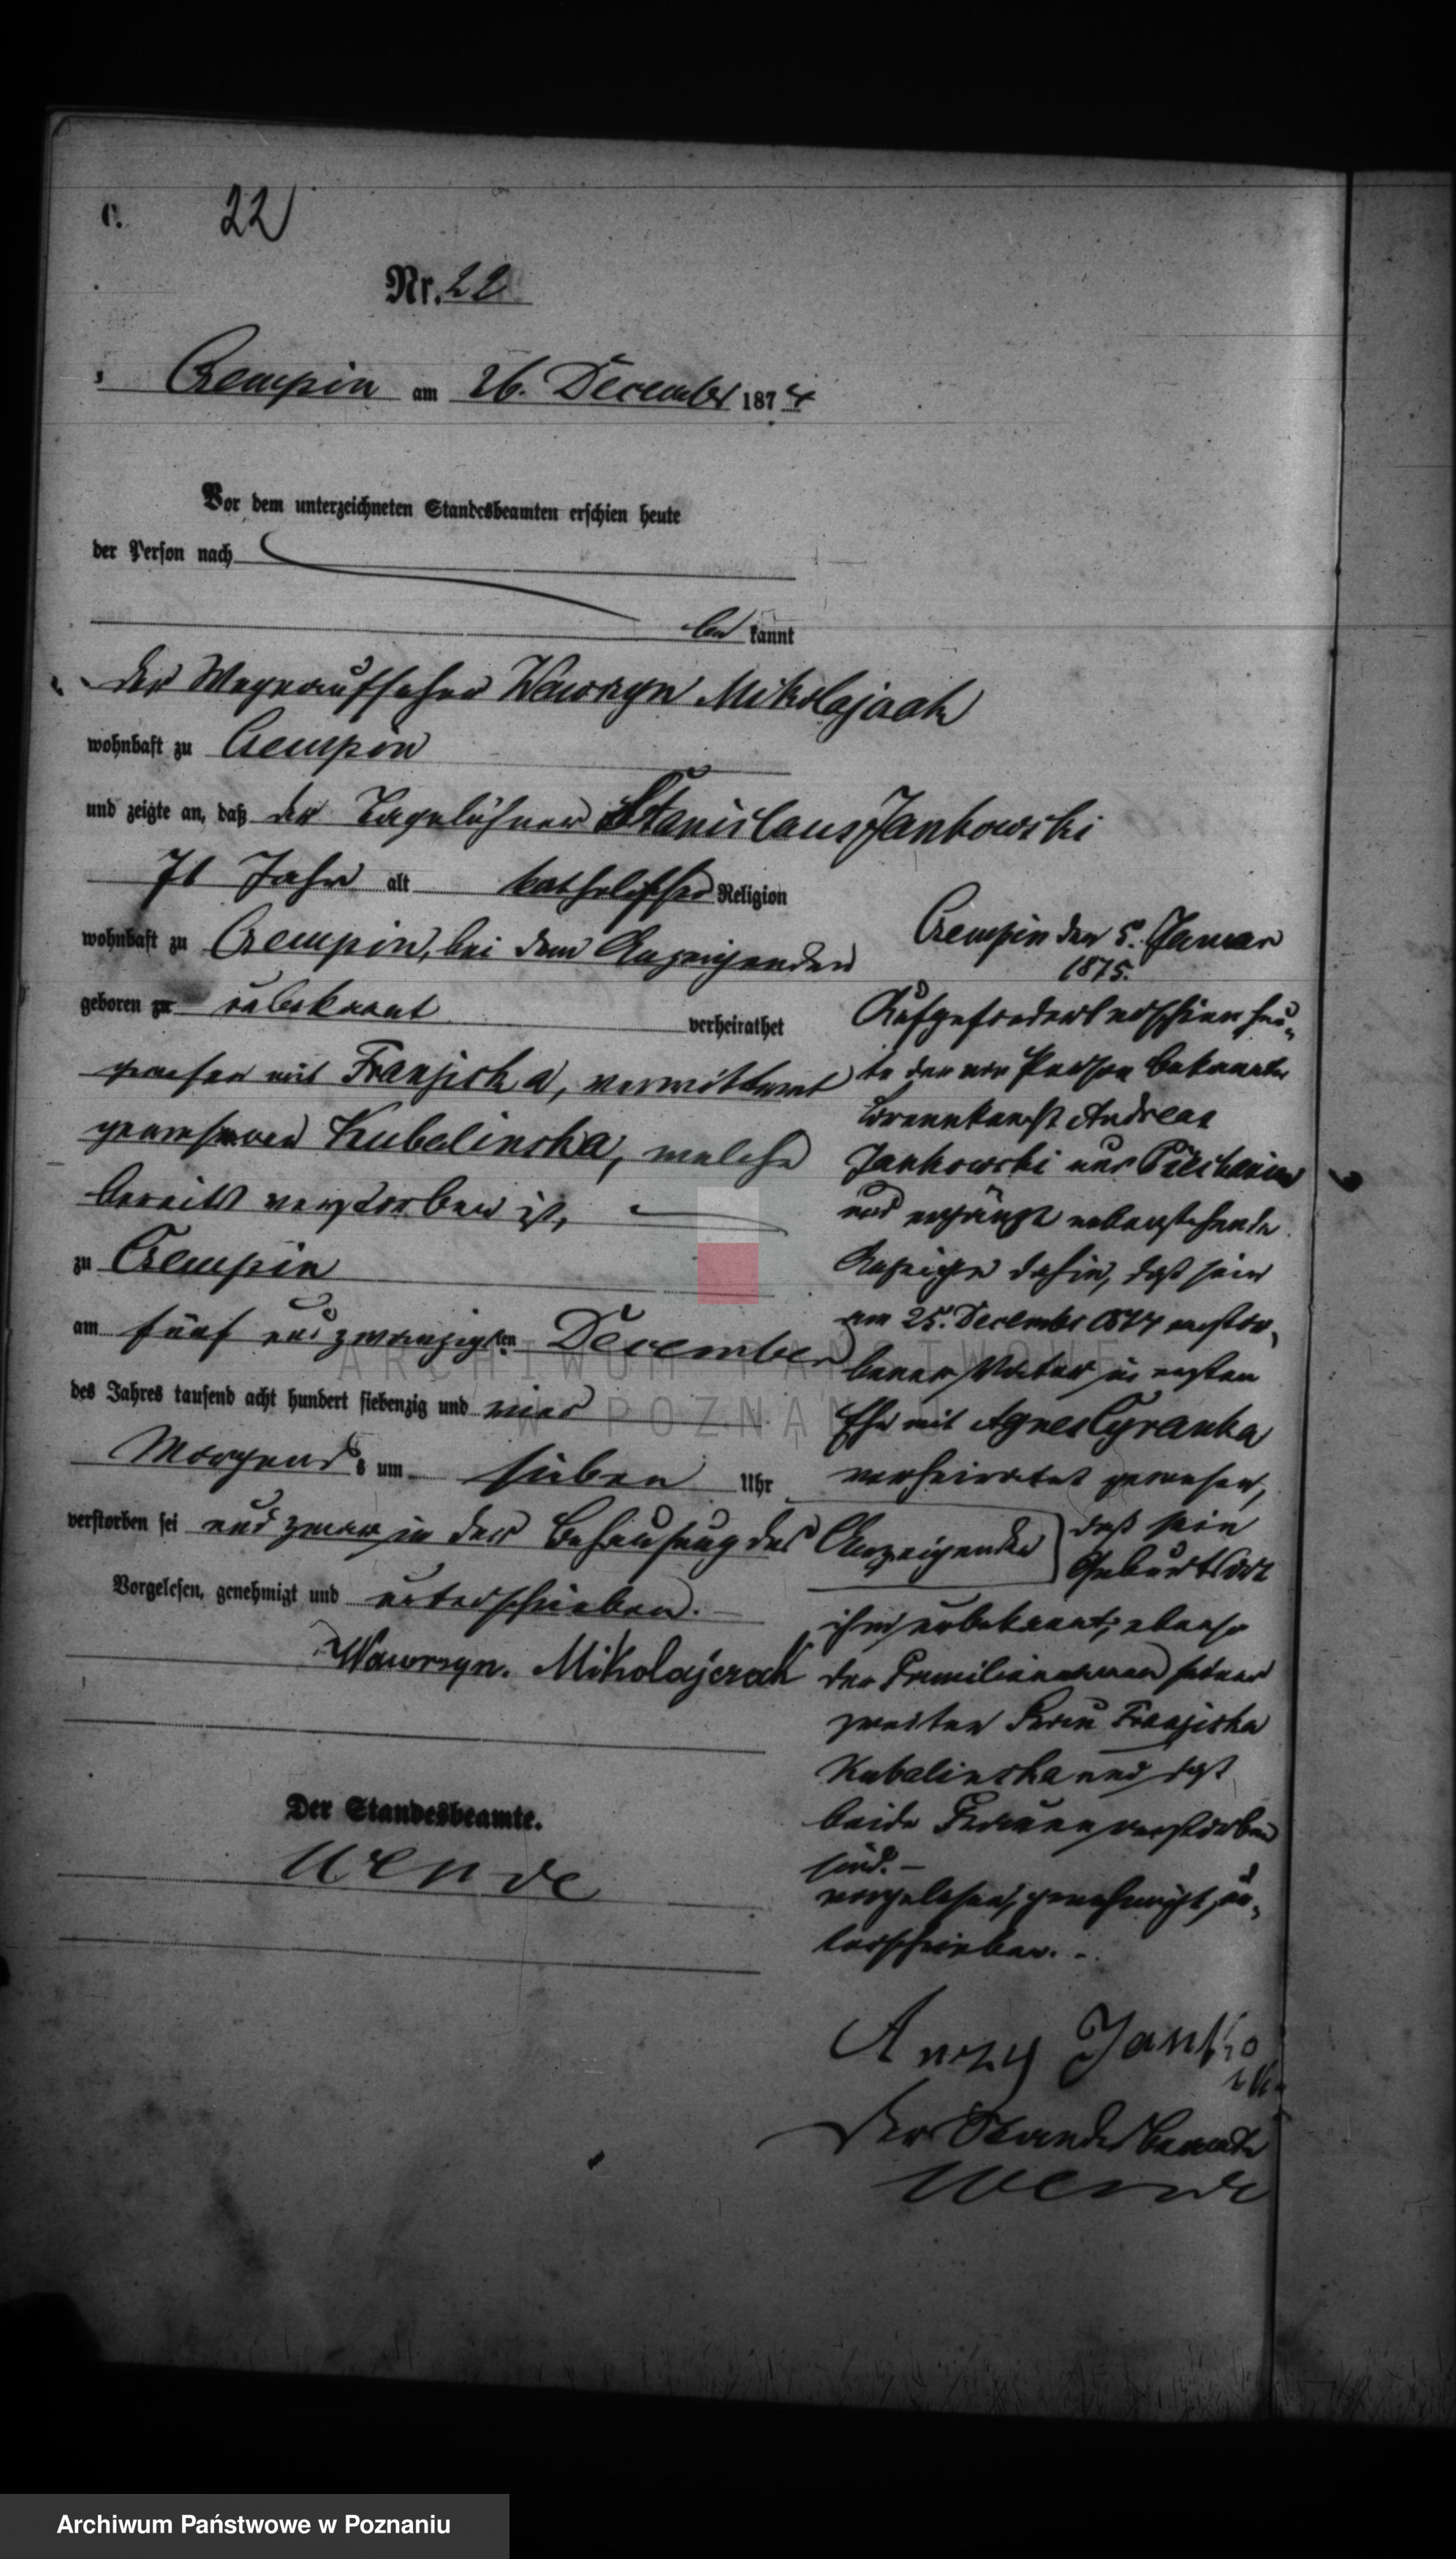 C.
22
Nr. 22
Czempin am 26. December 1874
Vor dem unterzeichneten Standesbeamten erschien heute
der Person nach
be kannt
der Wegeaufseher Wawrzyn Mikolajczak
wohnhaft zu Czempin
und zeigte an, daß der Tagelöhner Stanislaus Jankowski
71 Jahr alt katholischer Religion
wohnhaft zu Czempin, bei dem Anzeigenden
geboren zu unbekannt verheirathet
gewesen mit Franziska, verwittwet
gewesenen Kubalinska, welche
bereits verstorben ist,
zu Czempin
am fünf und zwanzigsten December
des Jahres tausend acht hundert siebenzig und vier
Morgens um sieben Uhr
verstorben sei und zwar in der Behausung des
Anzeigenden
Vorgelesen, genehmigt und unterschrieben.
Wawrzyn. Mikolajczak
Der Standesbeamte.
Wende
Czempin den 5. Januar
1875.
Aufgefordert erschien heu-
te der von Person bekannte
Andreas
Jankowski aus
und ergänzt nebenstehende
Anzeige dahin, daß sein
am 25. December 1874 verstor-
bener Vater in ersten
Ehe mit Agnes Cyranka
verheirathet gewesen,
daß sein
Geburtsort
ihm unbekannt, ebenso
der Familienname seiner
zweiten Frau Franziska
Kubalinska und daß
beide Frauen verstorben
sind. –
vorgelesen, genehmigt, un-
terschrieben. –
Jantko
wski
Der Standesbeamte
Wende
ARCHIWUM PAŃSTWOWE
W POZNANIU
Archiwum Państwowe w Poznaniu